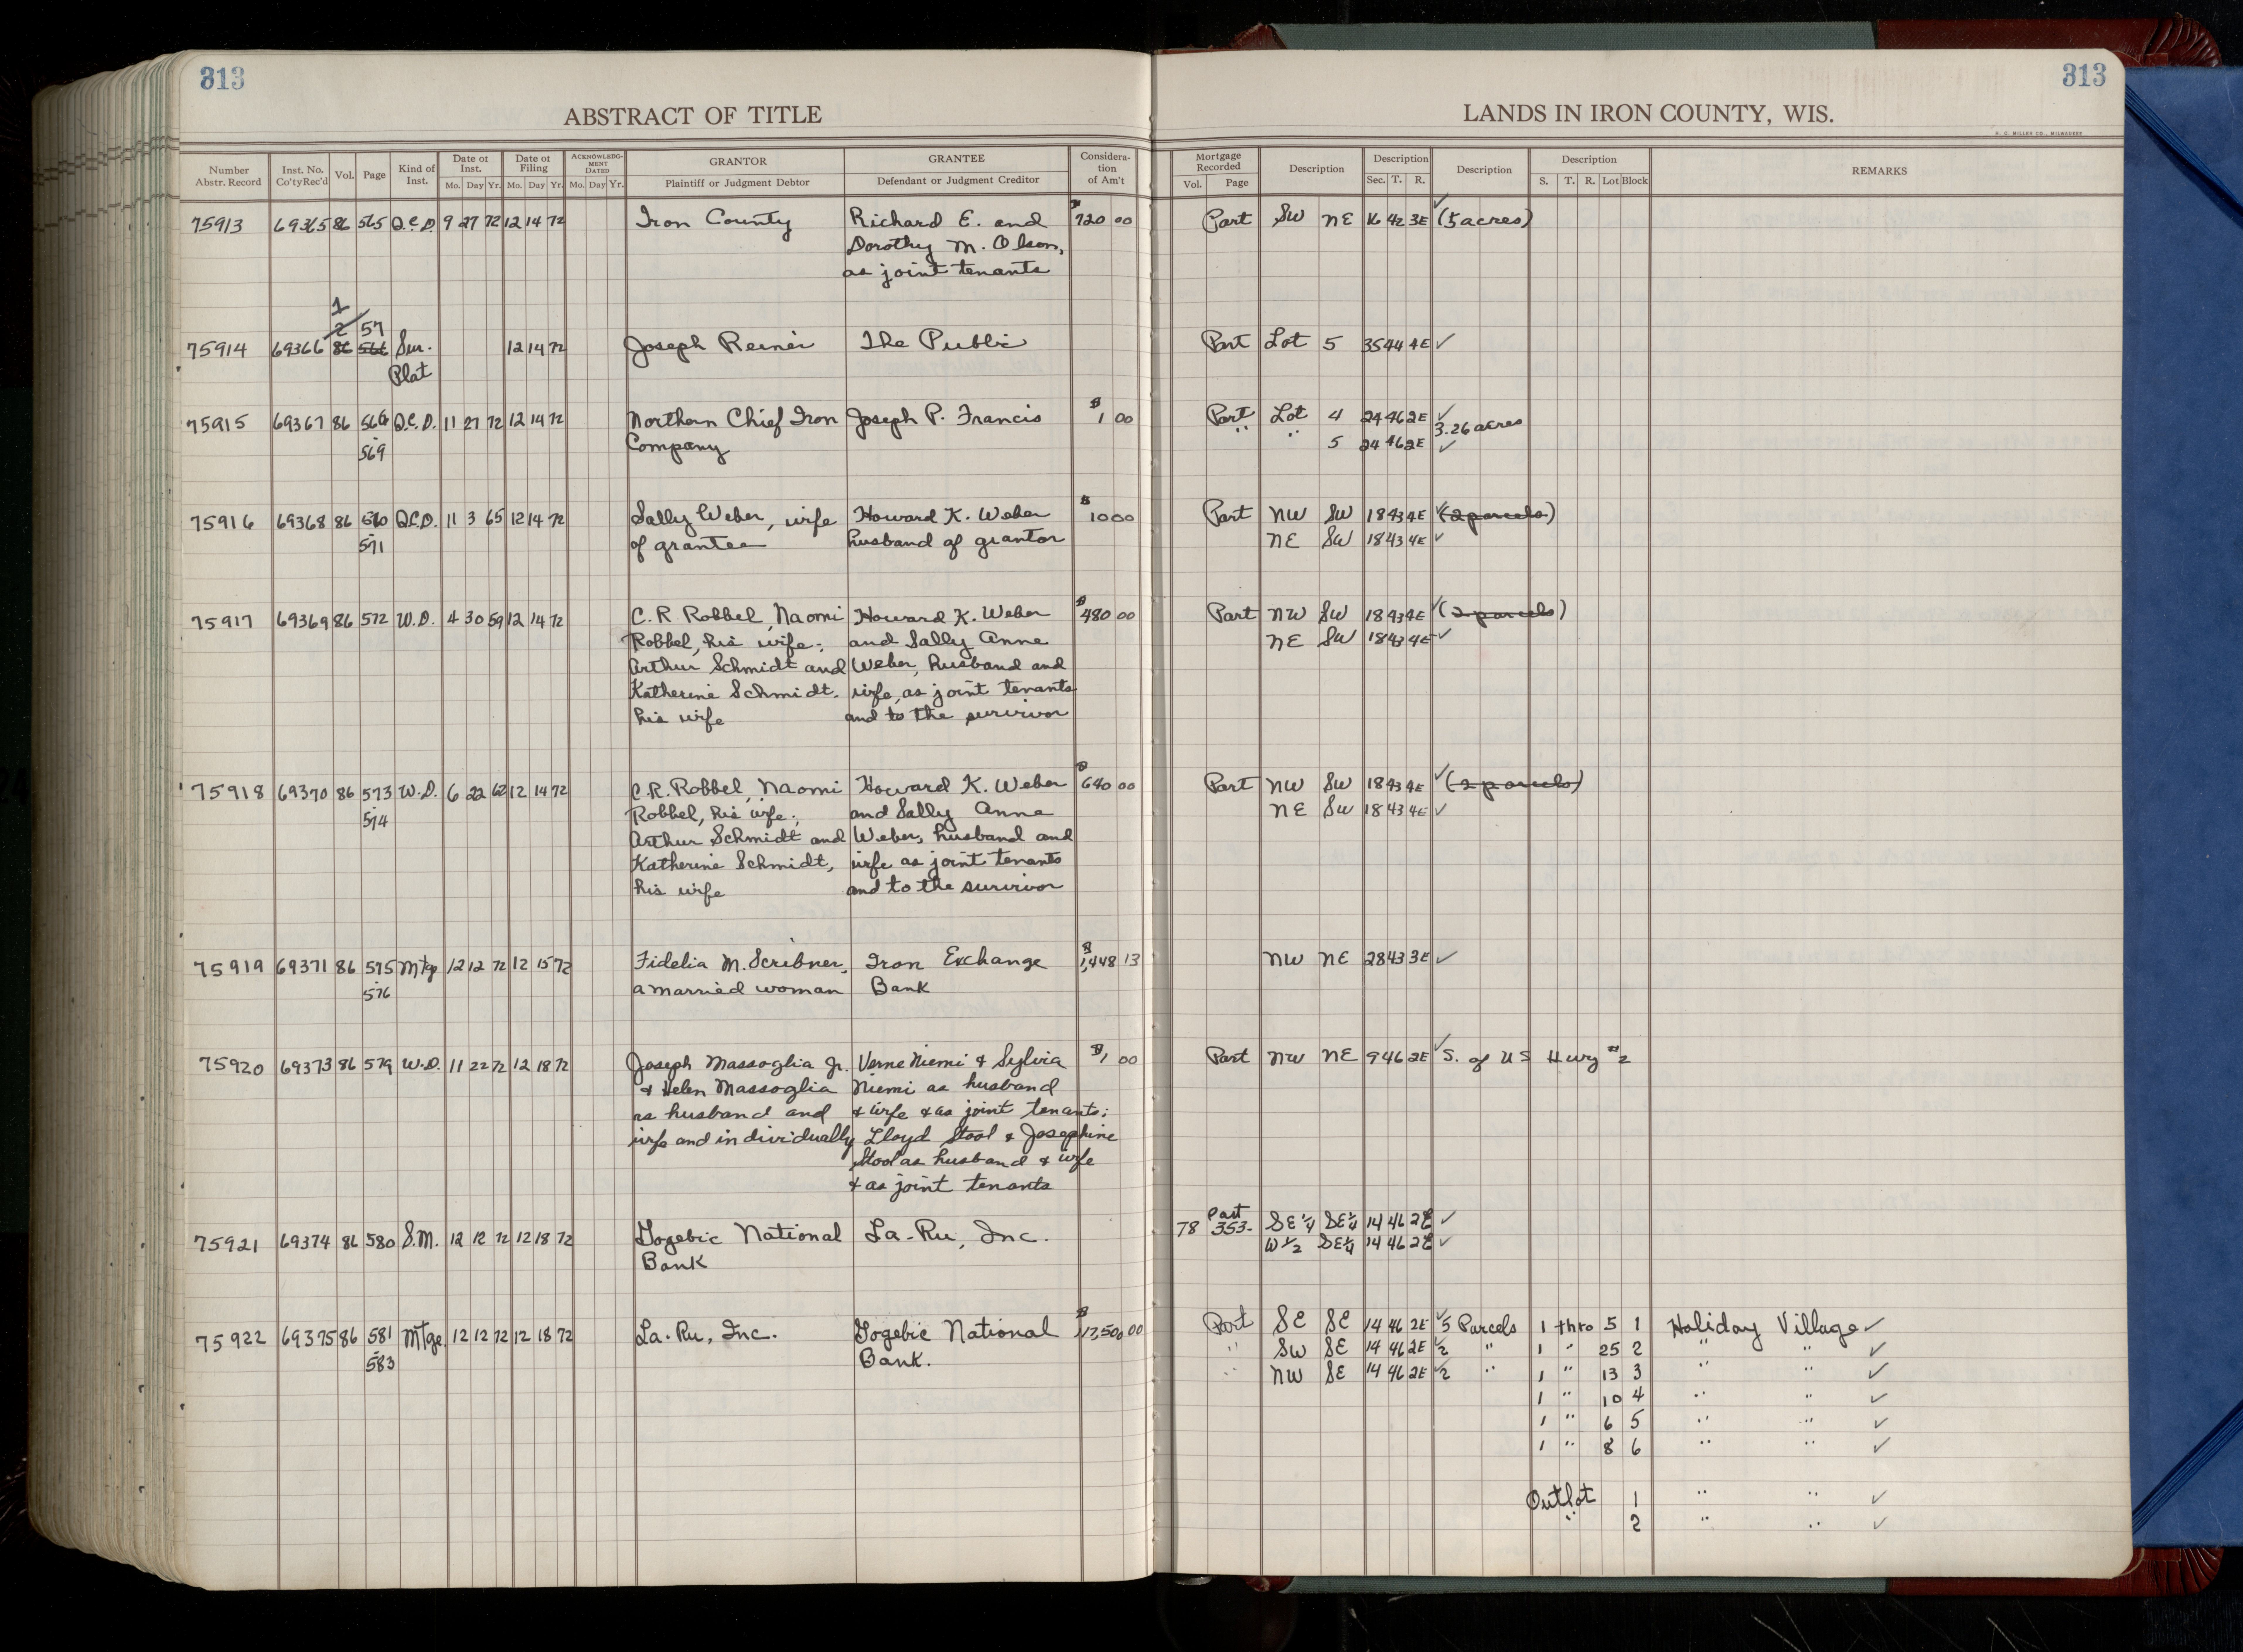 313
313
ABSTRACT OF TITLE
LANDS IN IRON COUNTY, WIS.
H. C. MILLER CO., MILWAUKEE
Number Abstr. Record | Inst. No. Co'ty Rec'd | Vol. | Page | Kind of Inst. | Date of Inst. Mo. Day Yr. | Date of Filing Mo. Day Yr. | ACKNOWLEDGMENT DATED Mo. Day Yr. | GRANTOR Plaintiff or Judgment Debtor | GRANTEE Defendant or Judgment Creditor | Consideration of Am't | Mortgage Recorded Vol. Page | Description | Description Sec. T. R. | Description | Description S. T. R. Lot Block | REMARKS
75913 69365 86 565 Q.C.D. 9 27 72 12 14 72 Iron County Richard E. and $720 00 Part SW NE 16 42 3E ✓ (5 acres)
Dorothy M. Olson,
as joint tenants
1
2 57
75914 69366 86 566 Sur. 12 14 72 Joseph Reiner The Public Part Lot 5 35 44 4E ✓
Plat
75915 69367 86 566 Q.C.D. 11 27 72 12 14 72 Northern Chief Iron Joseph P. Francis $1 00 Part Lot 4 24 46 2E ✓
3.26 acres
569 Company " " 5 24 46 2E ✓
75916 69368 86 570 Q.C.D. 11 3 65 12 14 72 Sally Weber, wife Howard K. Weber $10 00 Part NW SW 18 43 4E ✓ (2 parcels)
571 of grantee husband of grantor NE SW 18 43 4E ✓
75917 69369 86 572 W.D. 4 30 59 12 14 72 C.R Robbel, Naomi Howard K. Weber $480 00 Part NW SW 18 43 4E ✓ (2 parcels)
Robbel, his wife; and Sally Anne NE SW 18 43 4E ✓
Arthur Schmidt and Weber, husband and
Katherine Schmidt, wife, as joint tenants
his wife and to the survivor
75918 69370 86 573 W.D. 6 22 62 12 14 72 C.R. Robbel, Naomi Howard K. Weber $640 00 Part NW SW 18 43 4E ✓ (2 parcels)
574 Robbel, his wife; and Sally Anne NE SW 18 43 4E ✓
Arthur Schmidt and Weber, husband and
Katherine Schmidt, wife as joint tenants
his wife and to the survivor
75919 69371 86 575 Mtg 12 12 72 12 15 72 Fidelia M. Scribner, Iron Exchange $1,448 13 NW NE 28 43 3E ✓
576 a married woman Bank
75920 69373 86 579 W.D. 11 22 72 12 18 72 Joseph Massoglia Jr. Verne Niemi & Sylvia $1 00 Part NW NE 9 46 2E ✓ S. of US Hwy #2
& Helen Massoglia Niemi as husband
as husband and & wife & as joint tenants;
wife and individually Lloyd Stool & Josephine
Stool as husband & wife
& as joint tenants
75921 69374 86 580 S.M. 12 12 72 12 18 72 Gogebic National La-Ru, Inc. 78 Part 353- SE¼ SE¼ 14 46 2E ✓
Bank W½ SE¼ 14 46 2E ✓
75922 69375 86 581 Mtge. 12 12 72 12 18 72 La-Ru, Inc. Gogebic National $17,500 00 Part SE SE 14 46 2E ✓ 5 Parcels 1 thro 5 1 Holiday Village ✓
583 Bank. " SW SE 14 46 2E ✓ 2 " 1 " 25 2 " " ✓
" NW SE 14 46 2E ✓ 2 " 1 " 13 3 " " ✓
1 " 10 4 " " ✓
1 " 6 5 " " ✓
1 " 8 6 " " ✓
Outlot 1 " " ✓
" 2 " " ✓